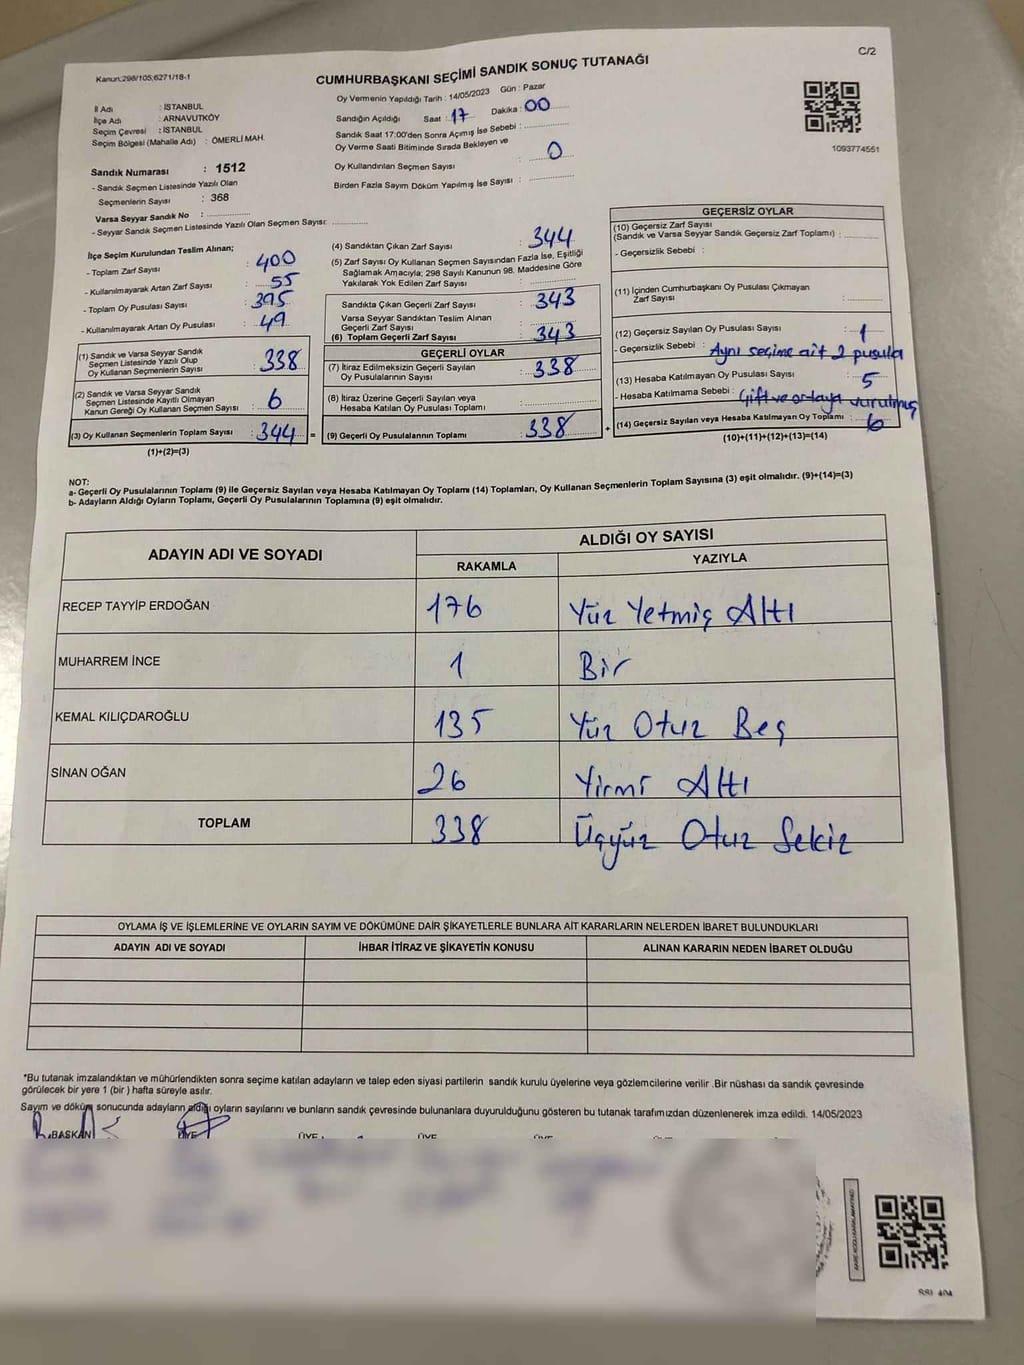 C/2
Kanun:298/105;6271/18-1
CUMHURBAŞKANI SEÇİMİ SANDIK SONUÇ TUTANAĞI
İl Adı : İSTANBUL
İlçe Adı : ARNAVUTKÖY
Seçim Çevresi : İSTANBUL
Seçim Bölgesi (Mahalle Adı) : ÖMERLİ MAH.
Sandık Numarası : 1512
- Sandık Seçmen Listesinde Yazılı Olan
Seçmenlerin Sayısı : 368
Varsa Seyyar Sandık No :
- Seyyar Sandık Seçmen Listesinde Yazılı Olan Seçmen Sayısı:
Oy Vermenin Yapıldığı Tarih : 14/05/2023 Gün : Pazar
Sandığın Açıldığı Saat : 17 Dakika : 00
Sandık Saat 17:00'den Sonra Açımış İse Sebebi :
Oy Verme Saati Bitiminde Sırada Bekleyen ve
Oy Kullandırılan Seçmen Sayısı : 0
Birden Fazla Sayım Döküm Yapılmış İse Sayısı :
1093774551
İlçe Seçim Kurulundan Teslim Alınan;
- Toplam Zarf Sayısı : 400
- Kullanılmayarak Artan Zarf Sayısı : 55
- Toplam Oy Pusulası Sayısı : 395
- Kullanılmayarak Artan Oy Pusulası : 49
(1) Sandık ve Varsa Seyyar Sandık
Seçmen Listesinde Yazılı Olup
Oy Kullanan Seçmenlerin Sayısı : 338
(2) Sandık ve Varsa Seyyar Sandık
Seçmen Listesinde Kayıtlı Olmayan
Kanun Gereği Oy Kullanan Seçmen Sayısı : 6
(3) Oy Kullanan Seçmenlerin Toplam Sayısı : 344 =
(1)+(2)=(3)
(4) Sandıktan Çıkan Zarf Sayısı : 344
(5) Zarf Sayısı Oy Kullanan Seçmen Sayısından Fazla İse, Eşitliği
Sağlamak Amacıyla; 298 Sayılı Kanunun 98. Maddesine Göre
Yakılarak Yok Edilen Zarf Sayısı :
Sandıkta Çıkan Geçerli Zarf Sayısı : 343
Varsa Seyyar Sandıktan Teslim Alınan
Geçerli Zarf Sayısı :
(6) Toplam Geçerli Zarf Sayısı : 343
GEÇERLİ OYLAR
(7) İtiraz Edilmeksizin Geçerli Sayılan
Oy Pusulalarının Sayısı : 338
(8) İtiraz Üzerine Geçerli Sayılan veya
Hesaba Katılan Oy Pusulası Toplamı :
(9) Geçerli Oy Pusulalarının Toplamı : 338 +
GEÇERSİZ OYLAR
(10) Geçersiz Zarf Sayısı
(Sandık ve Varsa Seyyar Sandık Geçersiz Zarf Toplamı) :
- Geçersizlik Sebebi :
(11) İçinden Cumhurbaşkanı Oy Pusulası Çıkmayan
Zarf Sayısı :
(12) Geçersiz Sayılan Oy Pusulası Sayısı : 1
- Geçersizlik Sebebi : Aynı seçime ait 2 pusula
(13) Hesaba Katılmayan Oy Pusulası Sayısı : 5
- Hesaba Katılmama Sebebi : Çift ve ortaya vurulmuş
(14) Geçersiz Sayılan veya Hesaba Katılmayan Oy Toplamı : 6
(10)+(11)+(12)+(13)=(14)
NOT:
a- Geçerli Oy Pusulalarının Toplamı (9) ile Geçersiz Sayılan veya Hesaba Katılmayan Oy Toplamı (14) Toplamları, Oy Kullanan Seçmenlerin Toplam Sayısına (3) eşit olmalıdır. (9)+(14)=(3)
b- Adayların Aldığı Oyların Toplamı, Geçerli Oy Pusulalarının Toplamına (9) eşit olmalıdır.
ADAYIN ADI VE SOYADI
ALDIĞI OY SAYISI
RAKAMLA YAZIYLA
RECEP TAYYİP ERDOĞAN 176 Yüz Yetmiş Altı
MUHARREM İNCE 1 Bir
KEMAL KILIÇDAROĞLU 135 Yüz Otuz Beş
SİNAN OĞAN 26 Yirmi Altı
TOPLAM 338 Üçyüz Otuz Sekiz
OYLAMA İŞ VE İŞLEMLERİNE VE OYLARIN SAYIM VE DÖKÜMÜNE DAİR ŞİKAYETLERLE BUNLARA AİT KARARLARIN NELERDEN İBARET BULUNDUKLARI
ADAYIN ADI VE SOYADI İHBAR İTİRAZ VE ŞİKAYETİN KONUSU ALINAN KARARIN NEDEN İBARET OLDUĞU
*Bu tutanak imzalandıktan ve mühürlendikten sonra seçime katılan adayların ve talep eden siyasi partilerin sandık kurulu üyelerine veya gözlemcilerine verilir .Bir nüshası da sandık çevresinde
görülecek bir yere 1 (bir ) hafta süreyle asılır.
Sayım ve döküm sonucunda adayların aldığı oyların sayılarını ve bunların sandık çevresinde bulunanlara duyurulduğunu gösteren bu tutanak tarafımızdan düzenlenerek imza edildi. 14/05/2023
BAŞKAN ÜYE ÜYE ÜYE